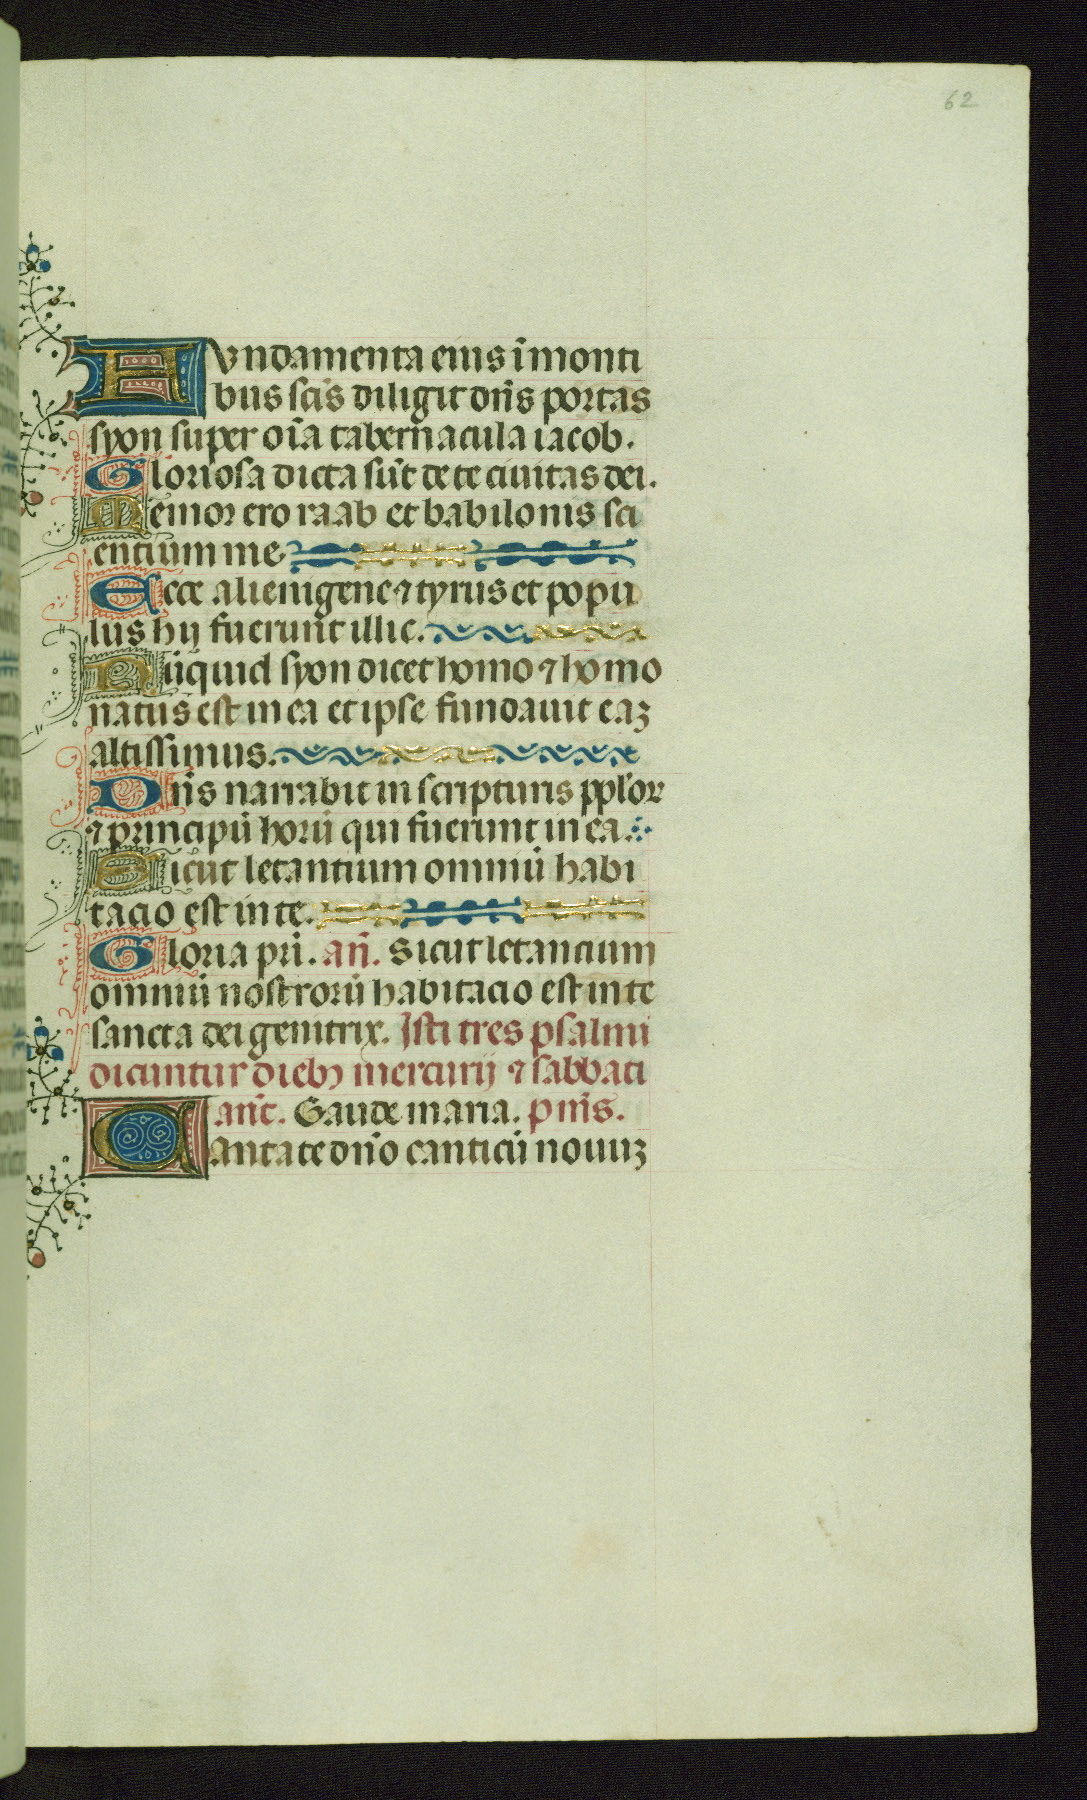 62
Fundamenta eius ī monti
bus scīs diligit dn̄s portas
syon super oīa tabern̄acula iacob.
Gloriosa dicta sūt de te ciuitas dei.
Memor ero raab et babilonis sci
entium me
Ecce alienigene ⁊ tyrus et popu
lus hij fuerunt illic.
Nūquid syon dicet homo ⁊ homo
natus est in ea et ipse fundauit eaꝫ
altissimus.
Dn̄s narrabit in scripturis pplōꝝ
⁊ principū horū qui fuerunt in ea.
Sicut letantium omniū habi
tacio est in te.
Gloria pr̄i. an̄. Sicut letancium
omniū nostrorū habitacio est in te
sancta dei genitrix. Isti tres psalmi
dicuntur diebꝫ mercurij ⁊ sabbati
an̄t. Gaude maria. p̄s̄.
Cantate dn̄o canticū nouuꝫ